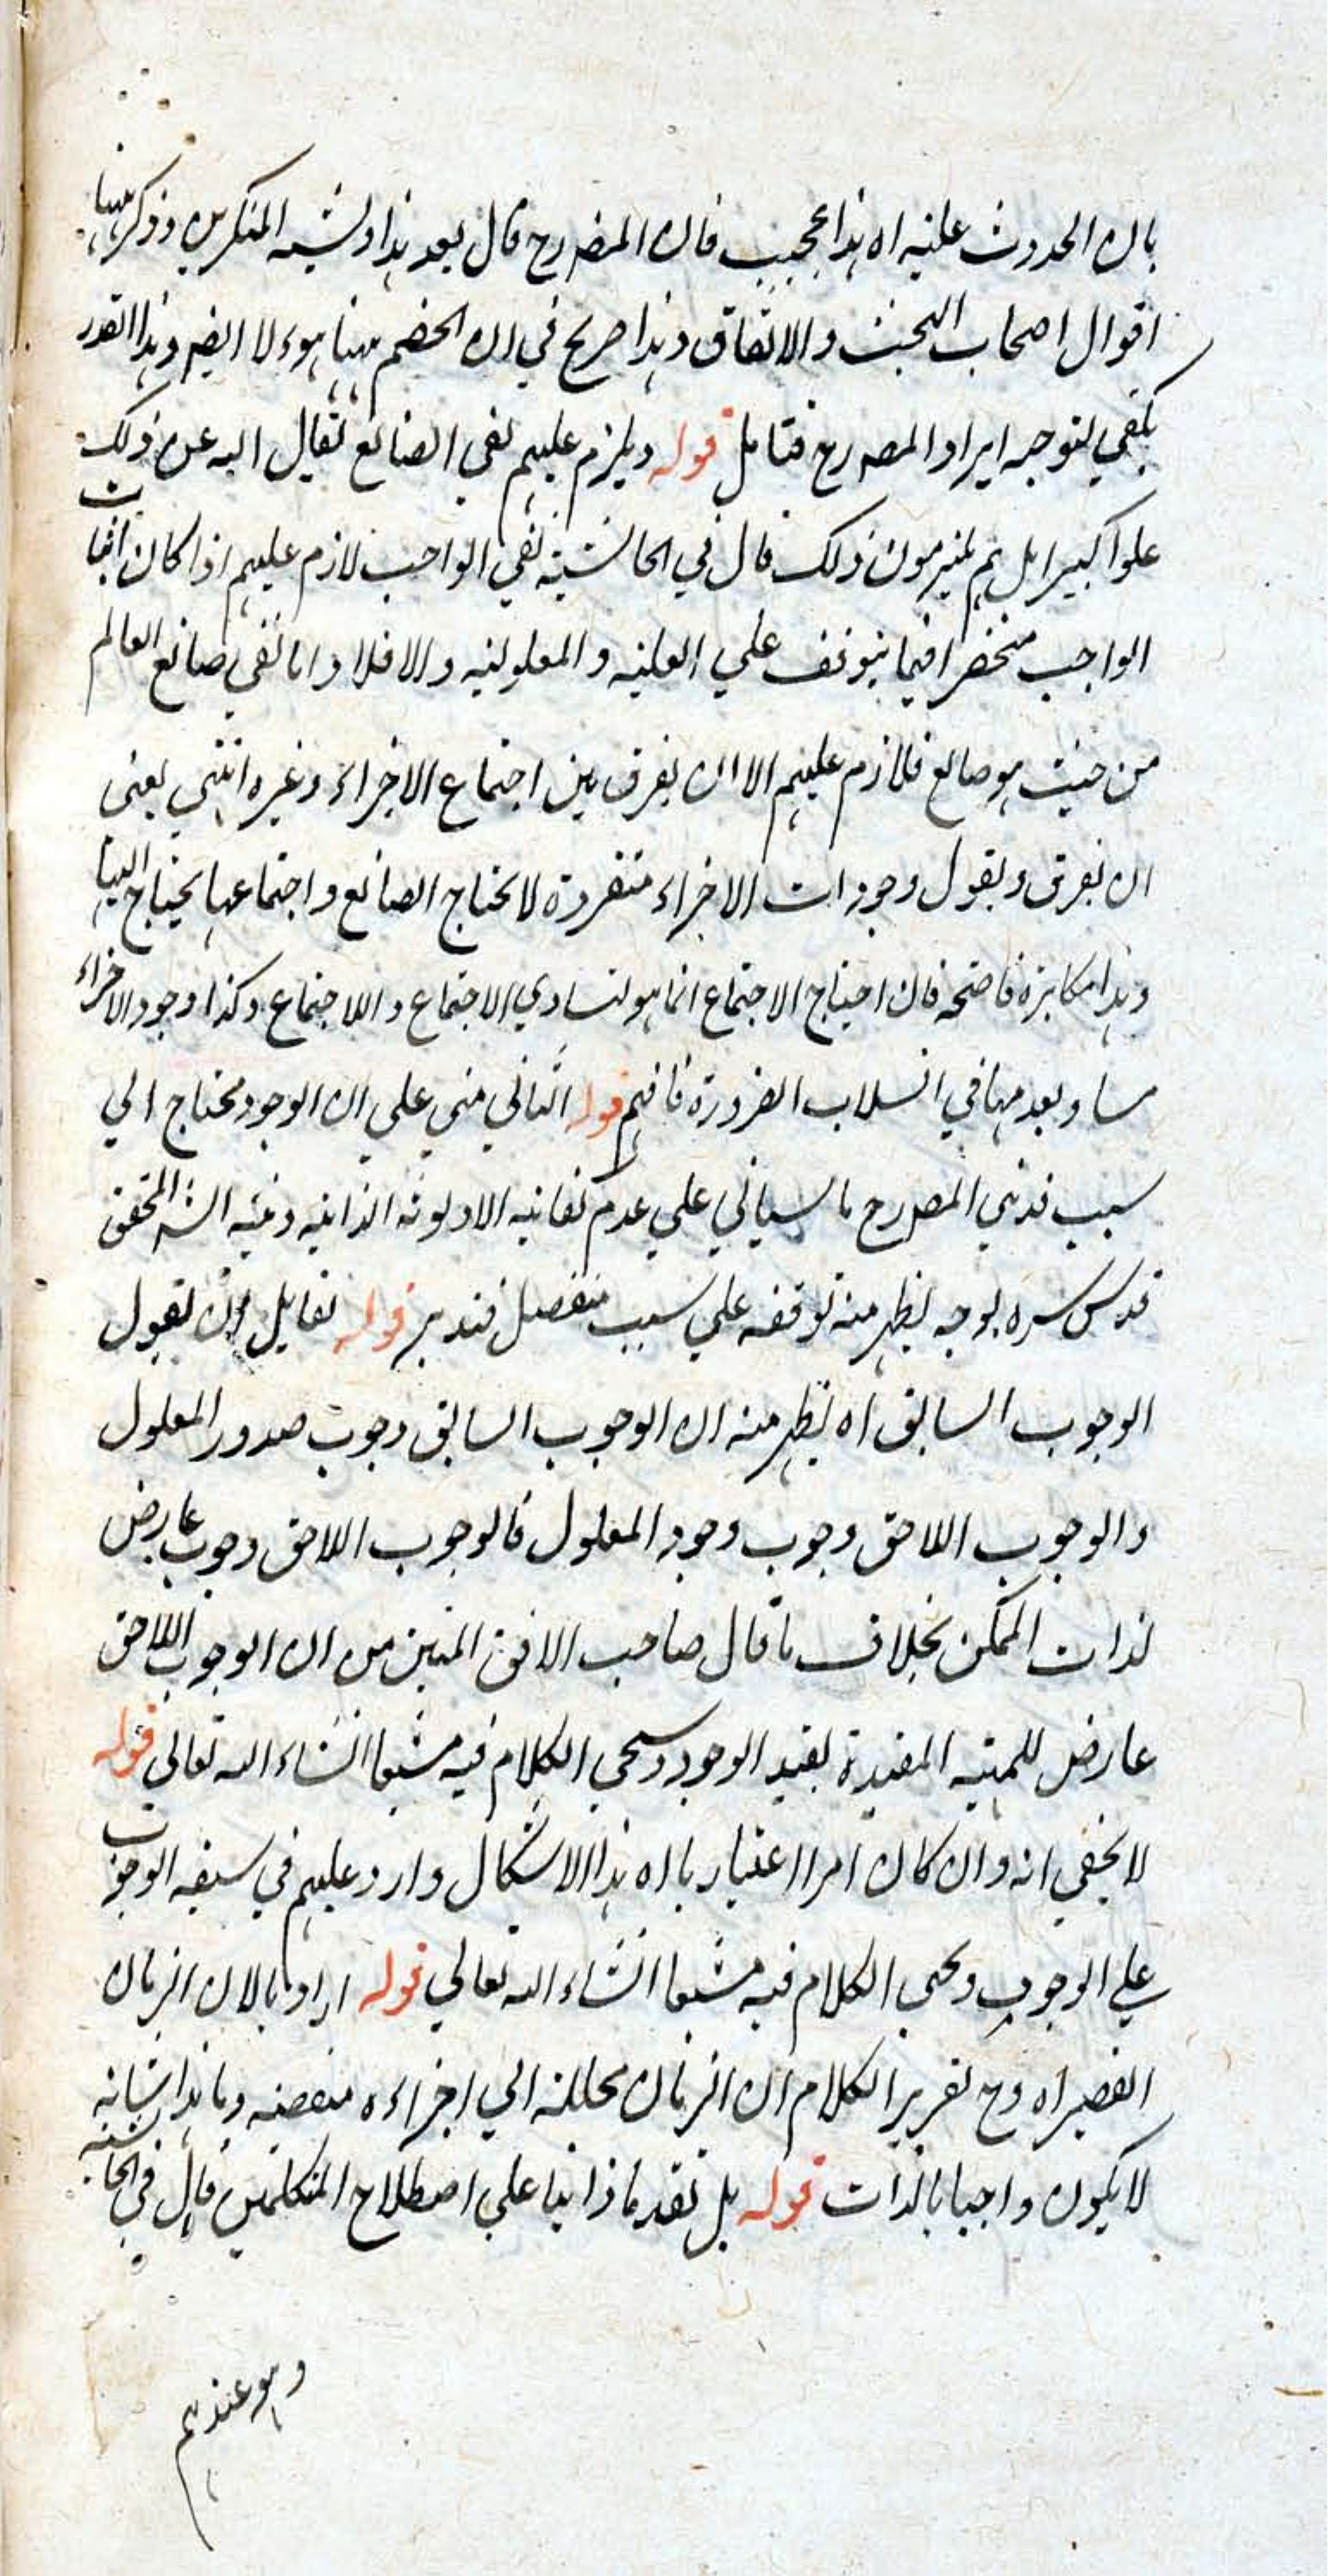 بان الحدوث علية اه هذا عجيب فان المصرح قال بعد هذا وشبه المنكرين وذكر ههنا
اقوال اصحاب البخت والاتفاق وهذا صريح في ان الخصم ههنا هوءلا ايضم وهذا القدر
يكفي لتوجيه ايراد المصرح فتامل قوله ويلزم عليهم نفي الصانع تعالى الله عن ذلك
علوا كبيرا بل هم ملتزمون ذلك قال في الحاشية نفي الواجب لازم عليهم اذا كان اثبات
الواجب منحصرا فيما يتوقف على العلية والمعلولية والا فلا واما نفي صانع العالم
من حيث هو صانع فلازم عليهم الا ان يفرق بين اجتماع الاجزاء وغيره انتهى يعني
ان يفرق ويقول وجودات الاجزاء منفردة لا تحتاج الصانع واجتماعها يحتاج اليها
وهذا مكابرة فاضحة فان احتياج الاجتماع انما هو لتساوي الاجتماع واللا اجتماع وكذا وجود الاجزاء
مساو بعدمها في انسلاب الضرورة فافهم قوله الثاني مبني على ان الوجود محتاج الى
سبب قد نبى المصرح ما سياتي على عدم كفاية الاولوية الذاتية وبينه الشه المحقق
قدس سره بوجه يظهر منه توقفه على سبب منفصل فتدبر قوله لقايل ان يقول
الوجوب السابق اه يظهر منه ان الوجوب السابق وجوب صدور المعلول
والوجوب اللاحق وجوب وجود المعلول فالوجوب اللاحق وجوب عارض
لذات الممكن بخلاف ما قال صاحب الافق المبين من ان الوجوب اللاحق
عارض للمهية المقيدة بقيد الوجود وسيجي الكلام فيه مشبعا انشاء الله تعالى قوله
لا يخفى انه وان كان امرا اعتباريا اه هذا الاشكال وارد عليهم في سبقه الوجوب
على الوجوب ويجي الكلام فيه مشبعا انشاء الله تعالى قوله اراد بالان الزمان
القصير اه وح تقرير الكلام ان الزمان محللة الى اجزاءه منقضية وما هذا شانه
لا يكون واجبا بالذات قوله بل تقدما ذاتيا على اصطلاح المتكلمين قال في الحاشية
وهو عندهم